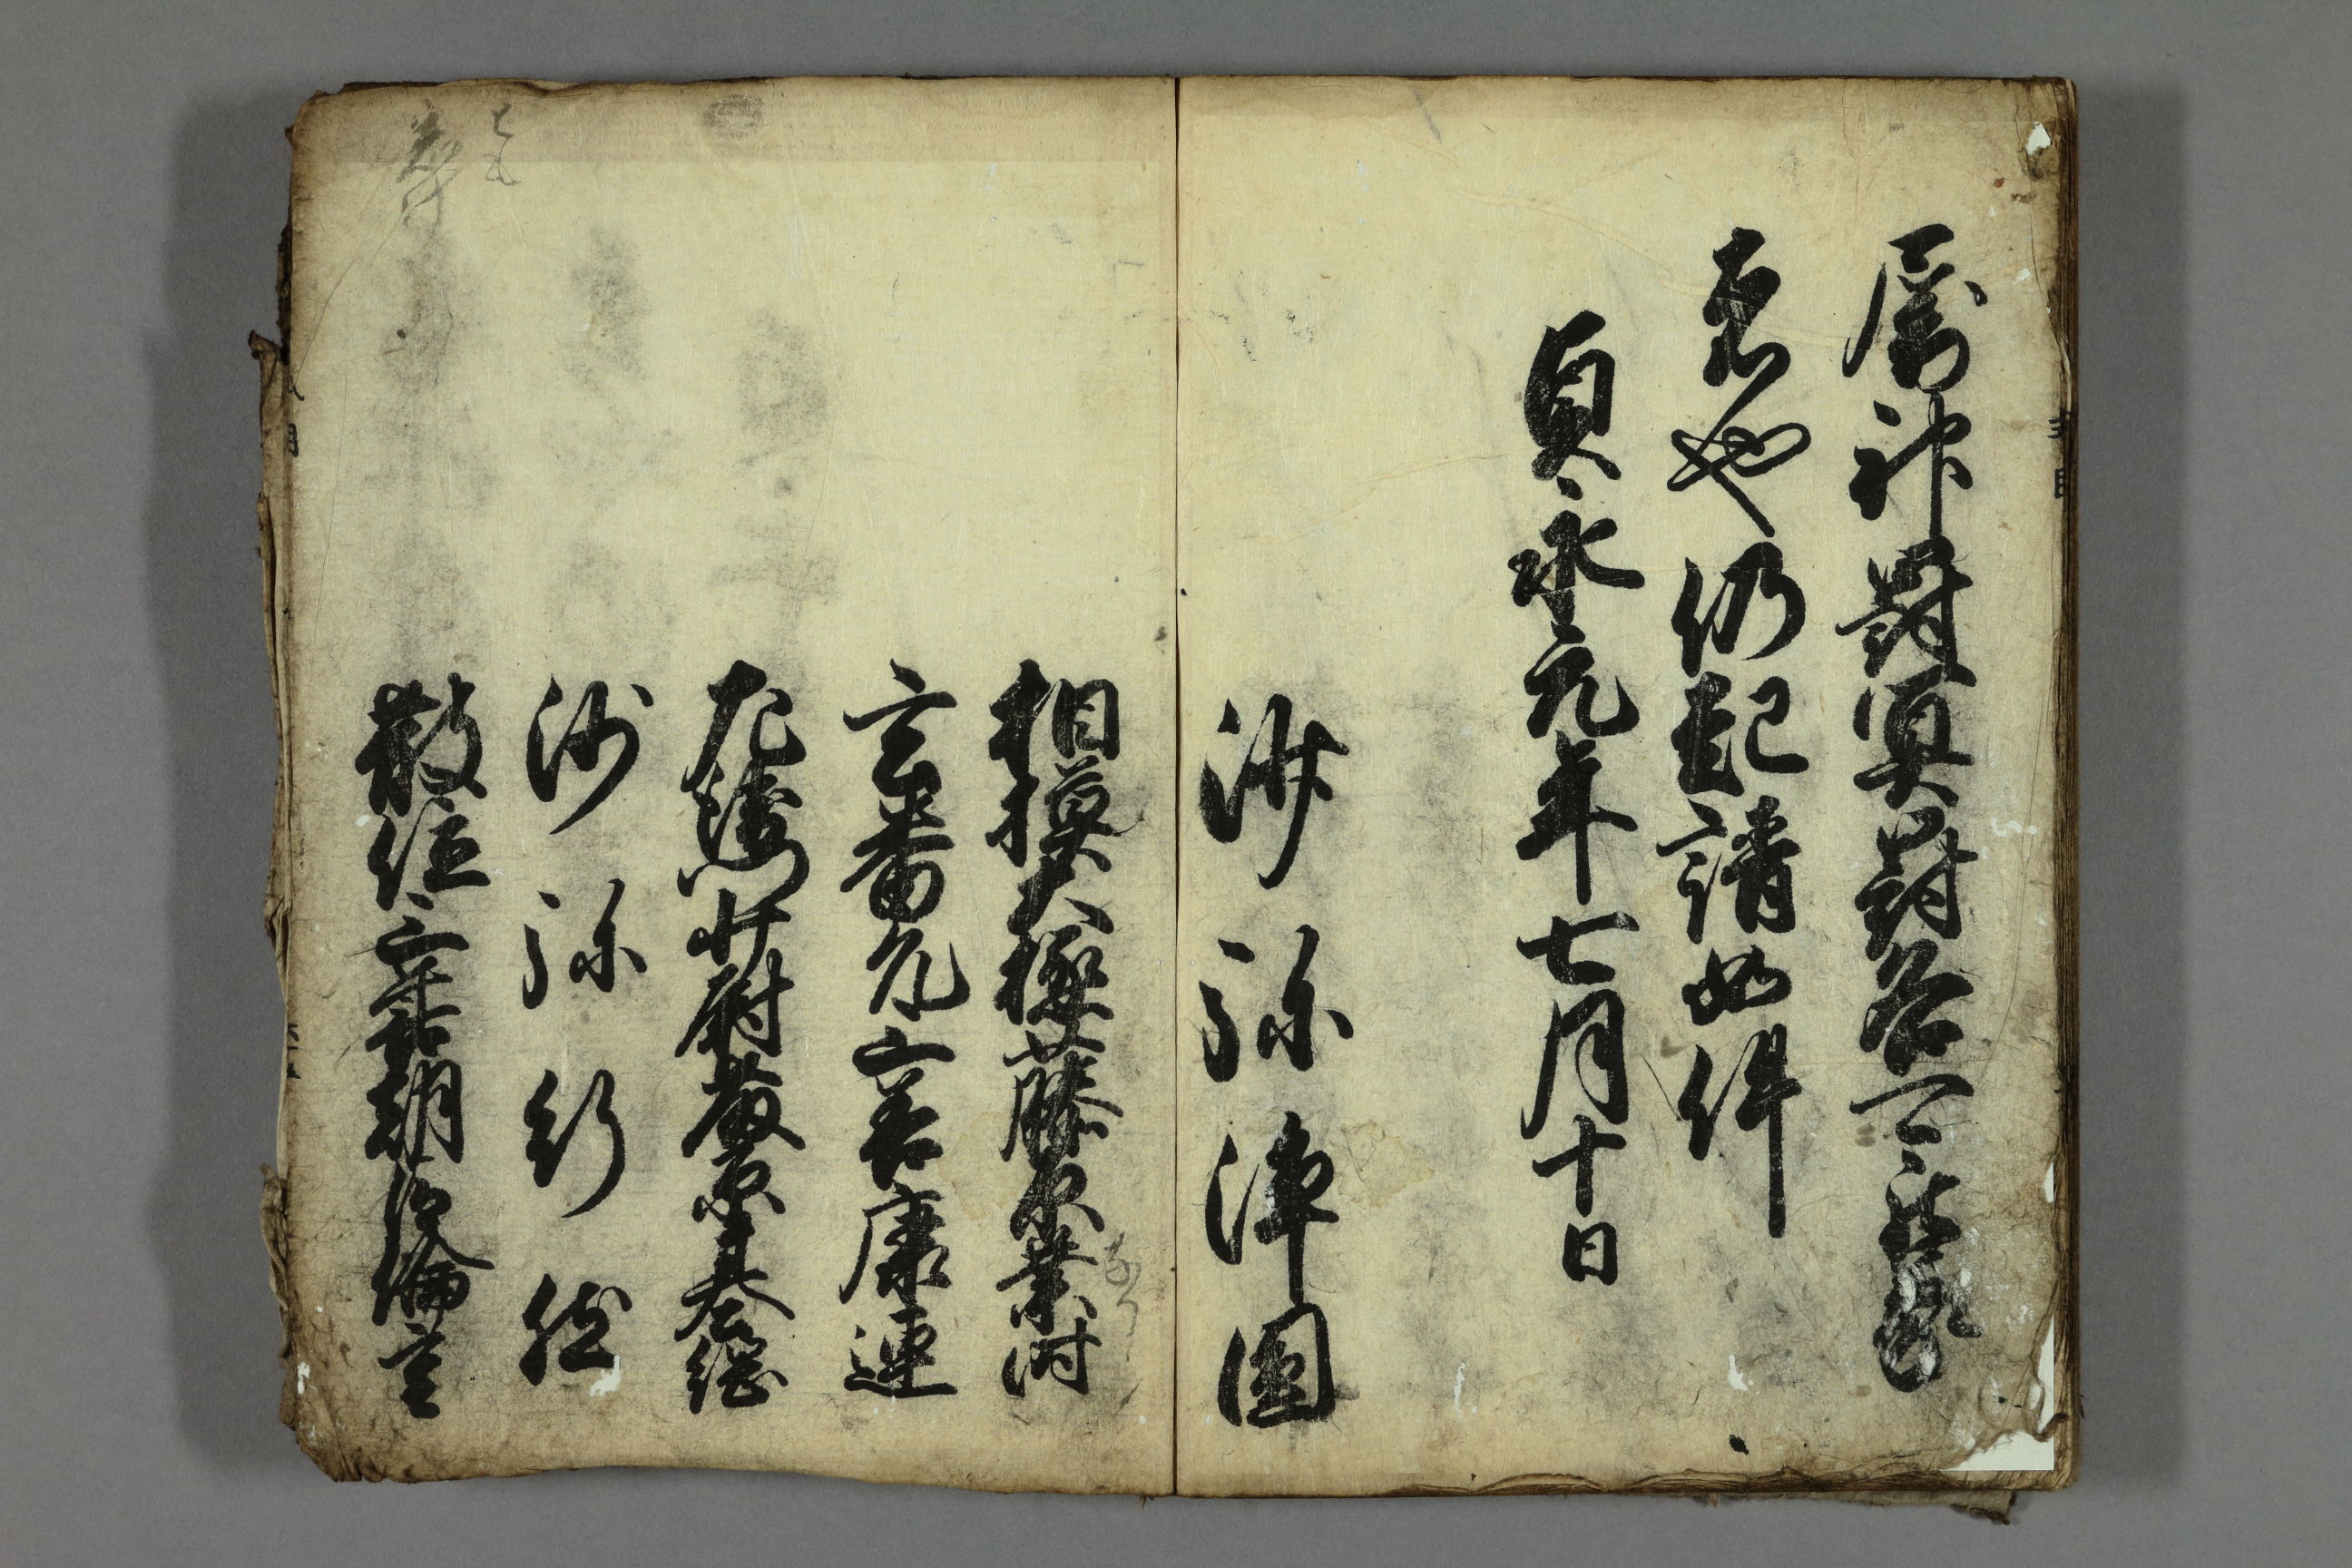 属神罰冥罰各可罷蒙
者也仍起請如件
貞永元年七月十日
沙弥浄圓
相模大掾藤原業時
玄番允三善康連
左衛門少尉藤原基綱
沙弥行然
散位三善朝臣倫重